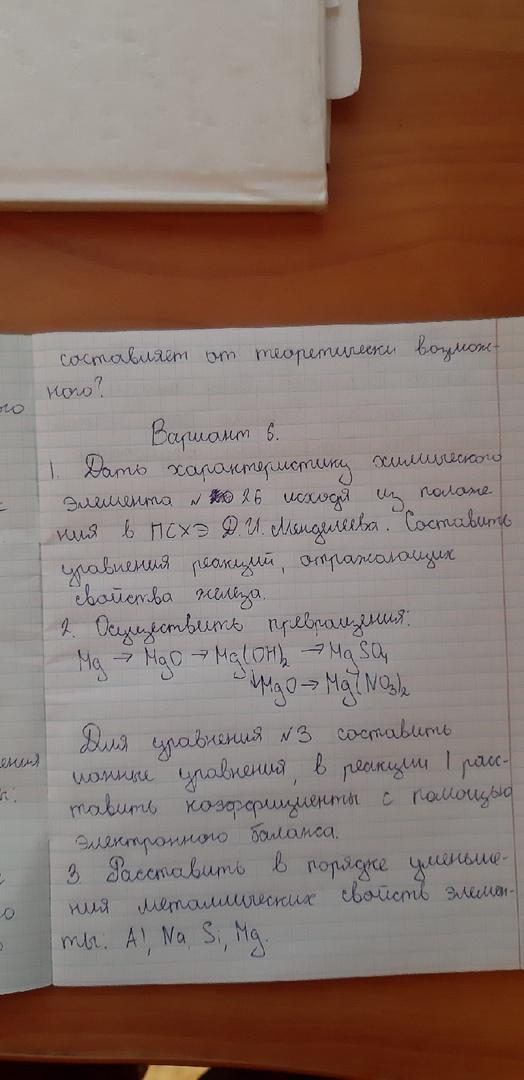 составляет от теоретически возмож-
ного?
Вариант 6.
1. Дать характеристику химического
элемента № 26 исходя из положе
ния в ПСХЭ Д.И. Менделеева. Составить
уравнения реакций, отражающих
свойства железа.
2. Осуществить превращения:
Mg → MgO → Mg(OH)₂ → MgSO₄
↓MgO → Mg(NO₃)₂
Для уравнения №3 составить
ионные уравнения, в реакции 1 расс-
тавить коэффициенты с помощью
электронного баланса.
3. Расставить в порядке уменьше-
ния металлических свойств элемен-
ты: Al, Na, Si, Mg.